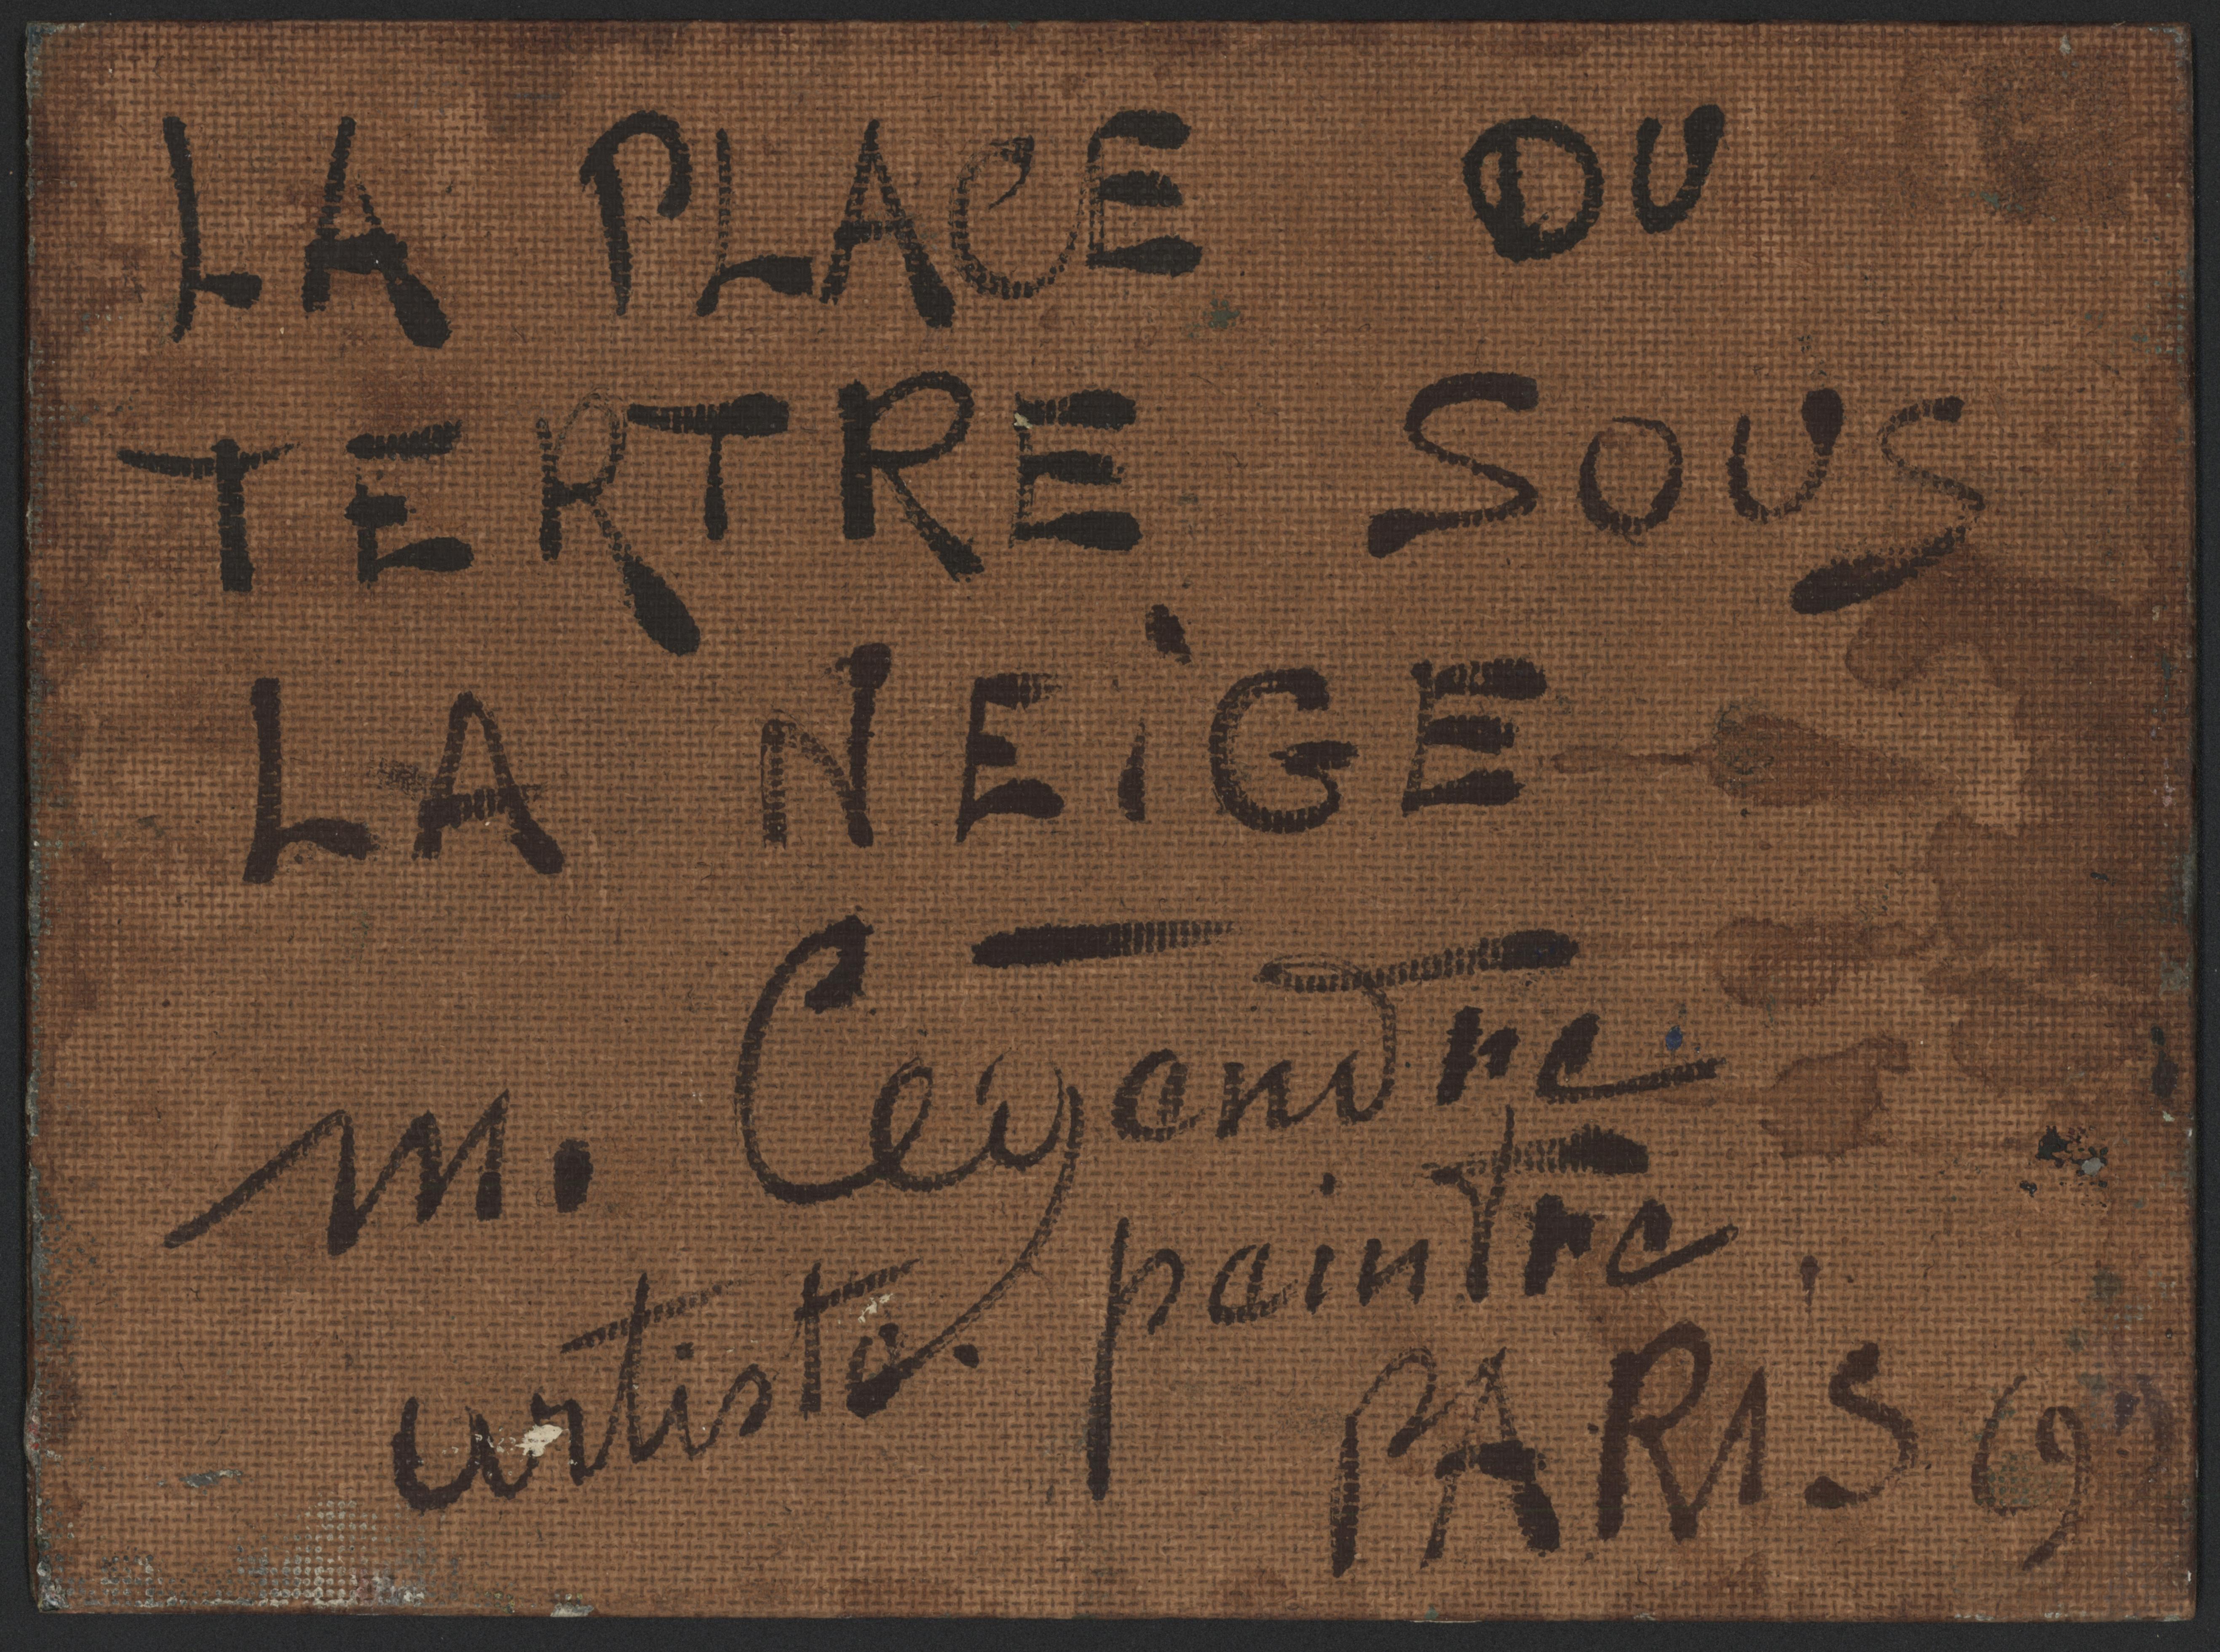 LA PLACE DU
TERTRE SOUS
LA NEiGE
M. Ceyandre
artiste. paintre
PARIS